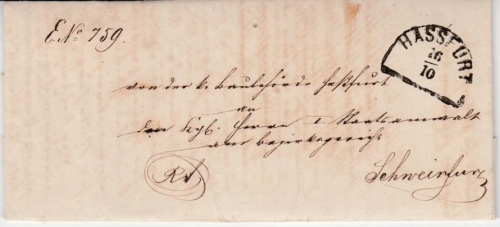 E.No 759.
HASSFURT
16/10
von der k. Baubehörde Haßfurt
an
den kgl. Herrn I Staatsanwalt
am Bezirksgericht
Schweinfurt